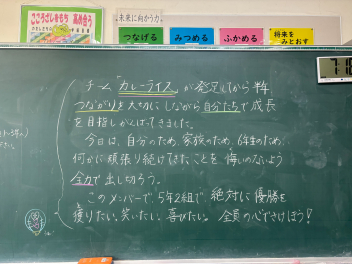 こころざしをもち 高め合う
未来に向かう力
つなげる
みつめる
ふかめる
将来を
みとおす
チーム「カレーライス」が発足してから半年
つながりを大切にしながら自分たちで成長
を目指しがんばってきました。
今日は、自分のため、家族のため、6年生のため、
何かに頑張り続けてきたことを、悔いのないよう
全力で出し切ろう。
このメンバーで、5年2組で、絶対に優勝を
獲りたい。笑いたい。喜びたい。全員の心でさけぼう!